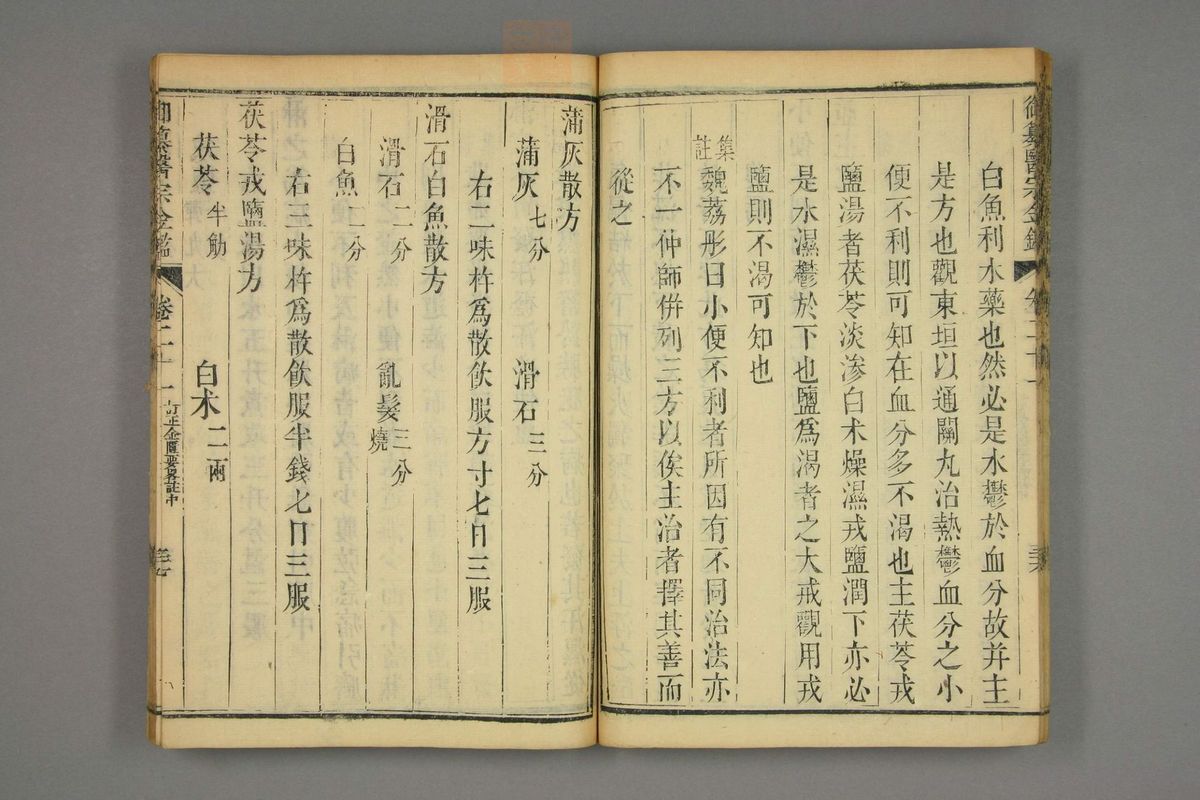 御纂醫宗金鑑 卷二十一 三六
白魚利水藥也然必是水鬱於血分故并主
是方也觀東垣以通關丸治熱鬱血分之小
便不利則可知在血分多不渴也主茯苓戎
鹽湯者茯苓淡渗白术燥濕戎鹽潤下亦必
是水濕鬱於下也鹽爲渴者之大戒觀用戎
鹽則不渴可知也
集註 魏荔彤曰小便不利者所因有不同治法亦
不一仲師倂列三方以俟主治者擇其善而
從之
蒲灰散方
蒲灰 七分 滑石 三分
右二味杵爲散飲服方寸七日三服
滑石白魚散方
滑石 二分 亂髮 三分燒
白魚 二分
右三味杵爲散飲服半錢七日三服
茯苓戎鹽湯方
茯苓 半觔 白术 二兩
御纂醫宗金鑑 卷二十一 訂正金匱要畧註中 三七